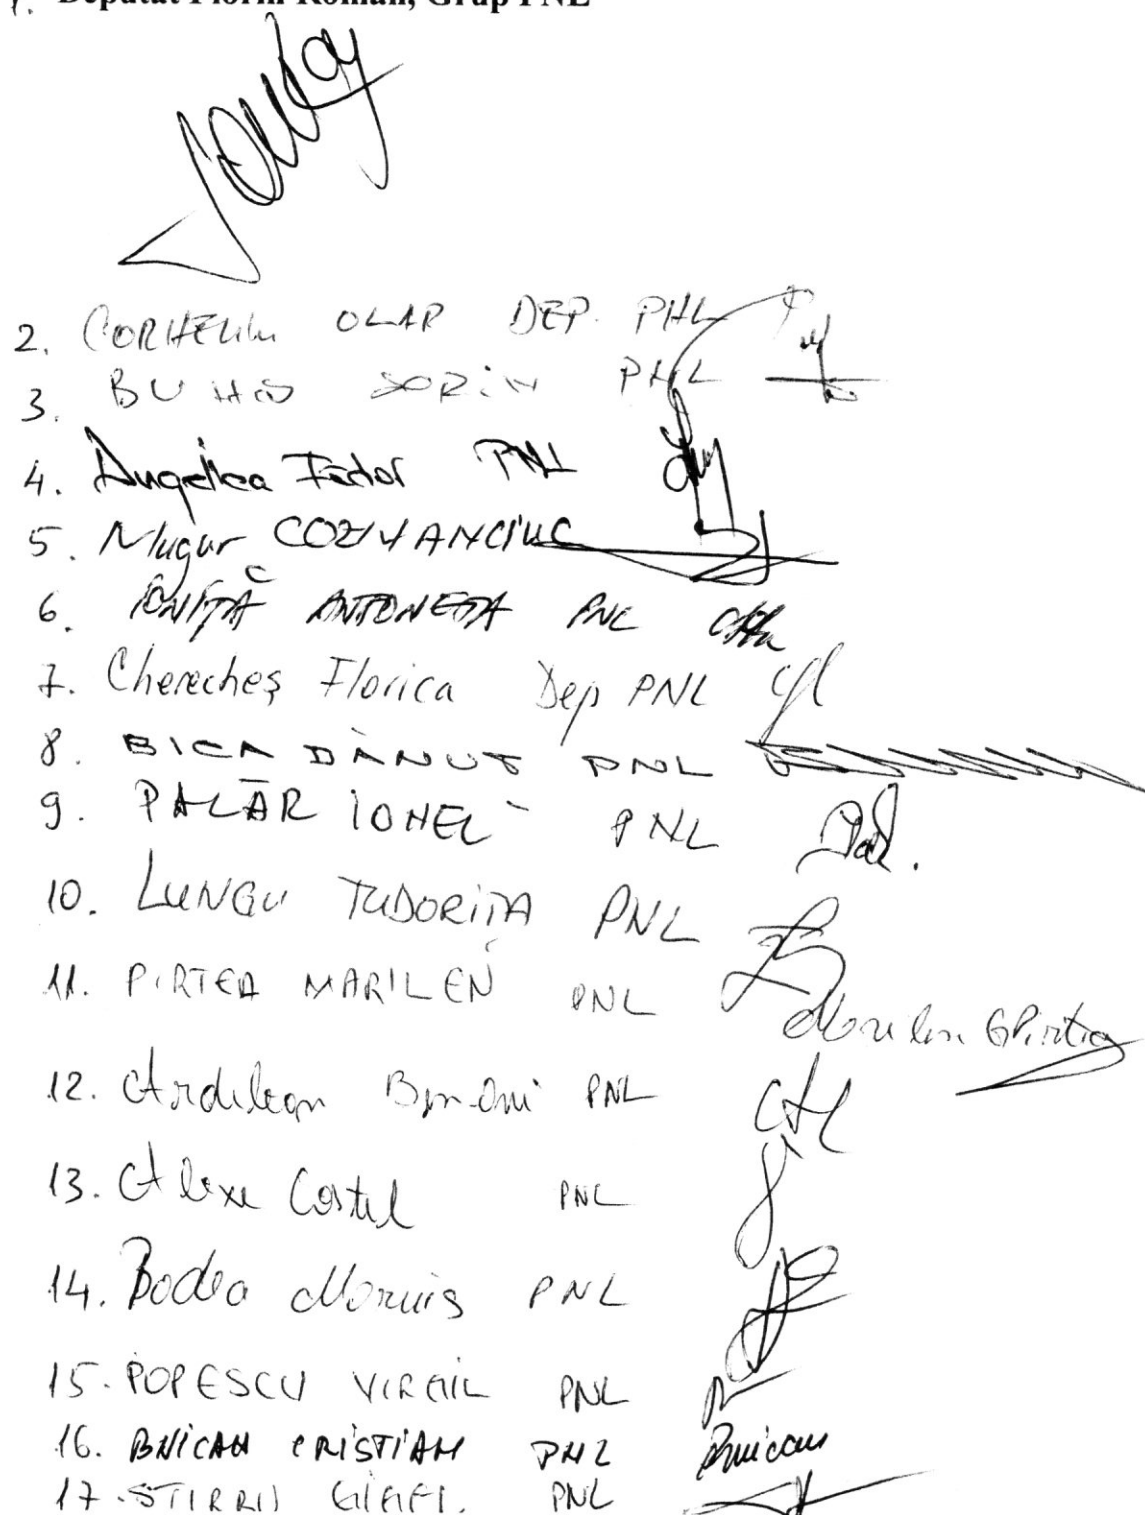 1. Deputat Florin Roman, Grup PNL
2. CORNELIU OLAR DEP. PNL
3. BUMB SORIN PNL
4. Angelica Fădor PNL
5. Mugur COZMANCIUC
6. IONIȚĂ ANTONETA PNL
7. Cherecheș Florica Dep PNL
8. BICA DĂNUȚ PNL
9. PALĂR IONEL PNL
10. LUNGU TUDORIȚA PNL
11. PIRTEA MARILEN PNL
Marilen GPirtea
12. Ardelean Ben-Oni PNL
13. Alexe Costel PNL
14. Bodea Marius PNL
15. POPESCU VIRGIL PNL
16. BUICAN CRISTIAN PNL Buican
17. GIGEL PNL